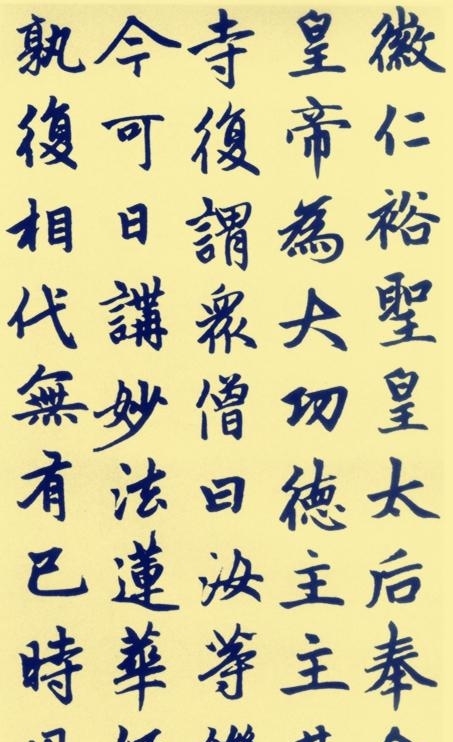 徽仁裕聖皇太后奉
皇帝為大功德主主
寺復謂衆僧曰汝等
今可日講妙法蓮華
孰復相代無有已時